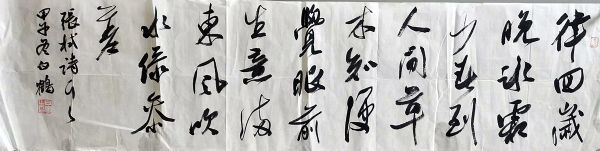 律回歲
晚冰霜
少春到
人間草
木知便
覺眼前
生意滿
東風吹
水綠參
差
張栻詩
甲午白鶴